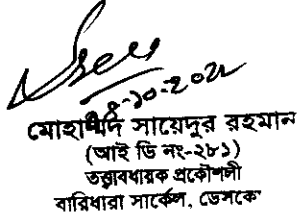 মোহাম্মদ সায়েদুর রহমান
(আই ডি নং-২৮১)
তত্ত্বাবধায়ক প্রকৌশলী
বারিধারা সার্কেল, ডেসকো